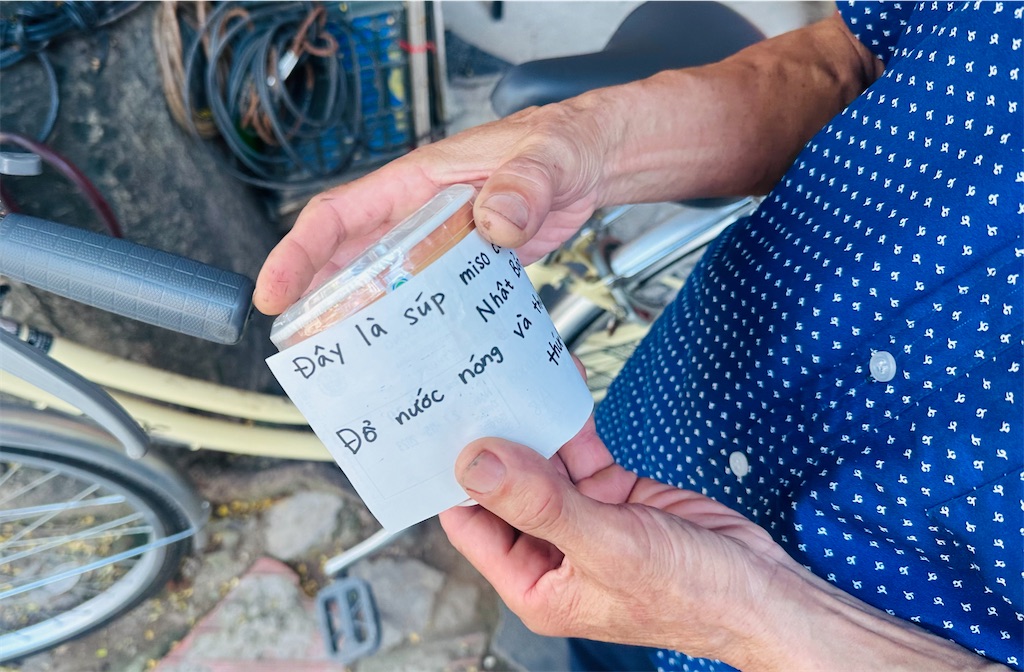 Đây là súp miso
Nhật
Đổ nước nóng và